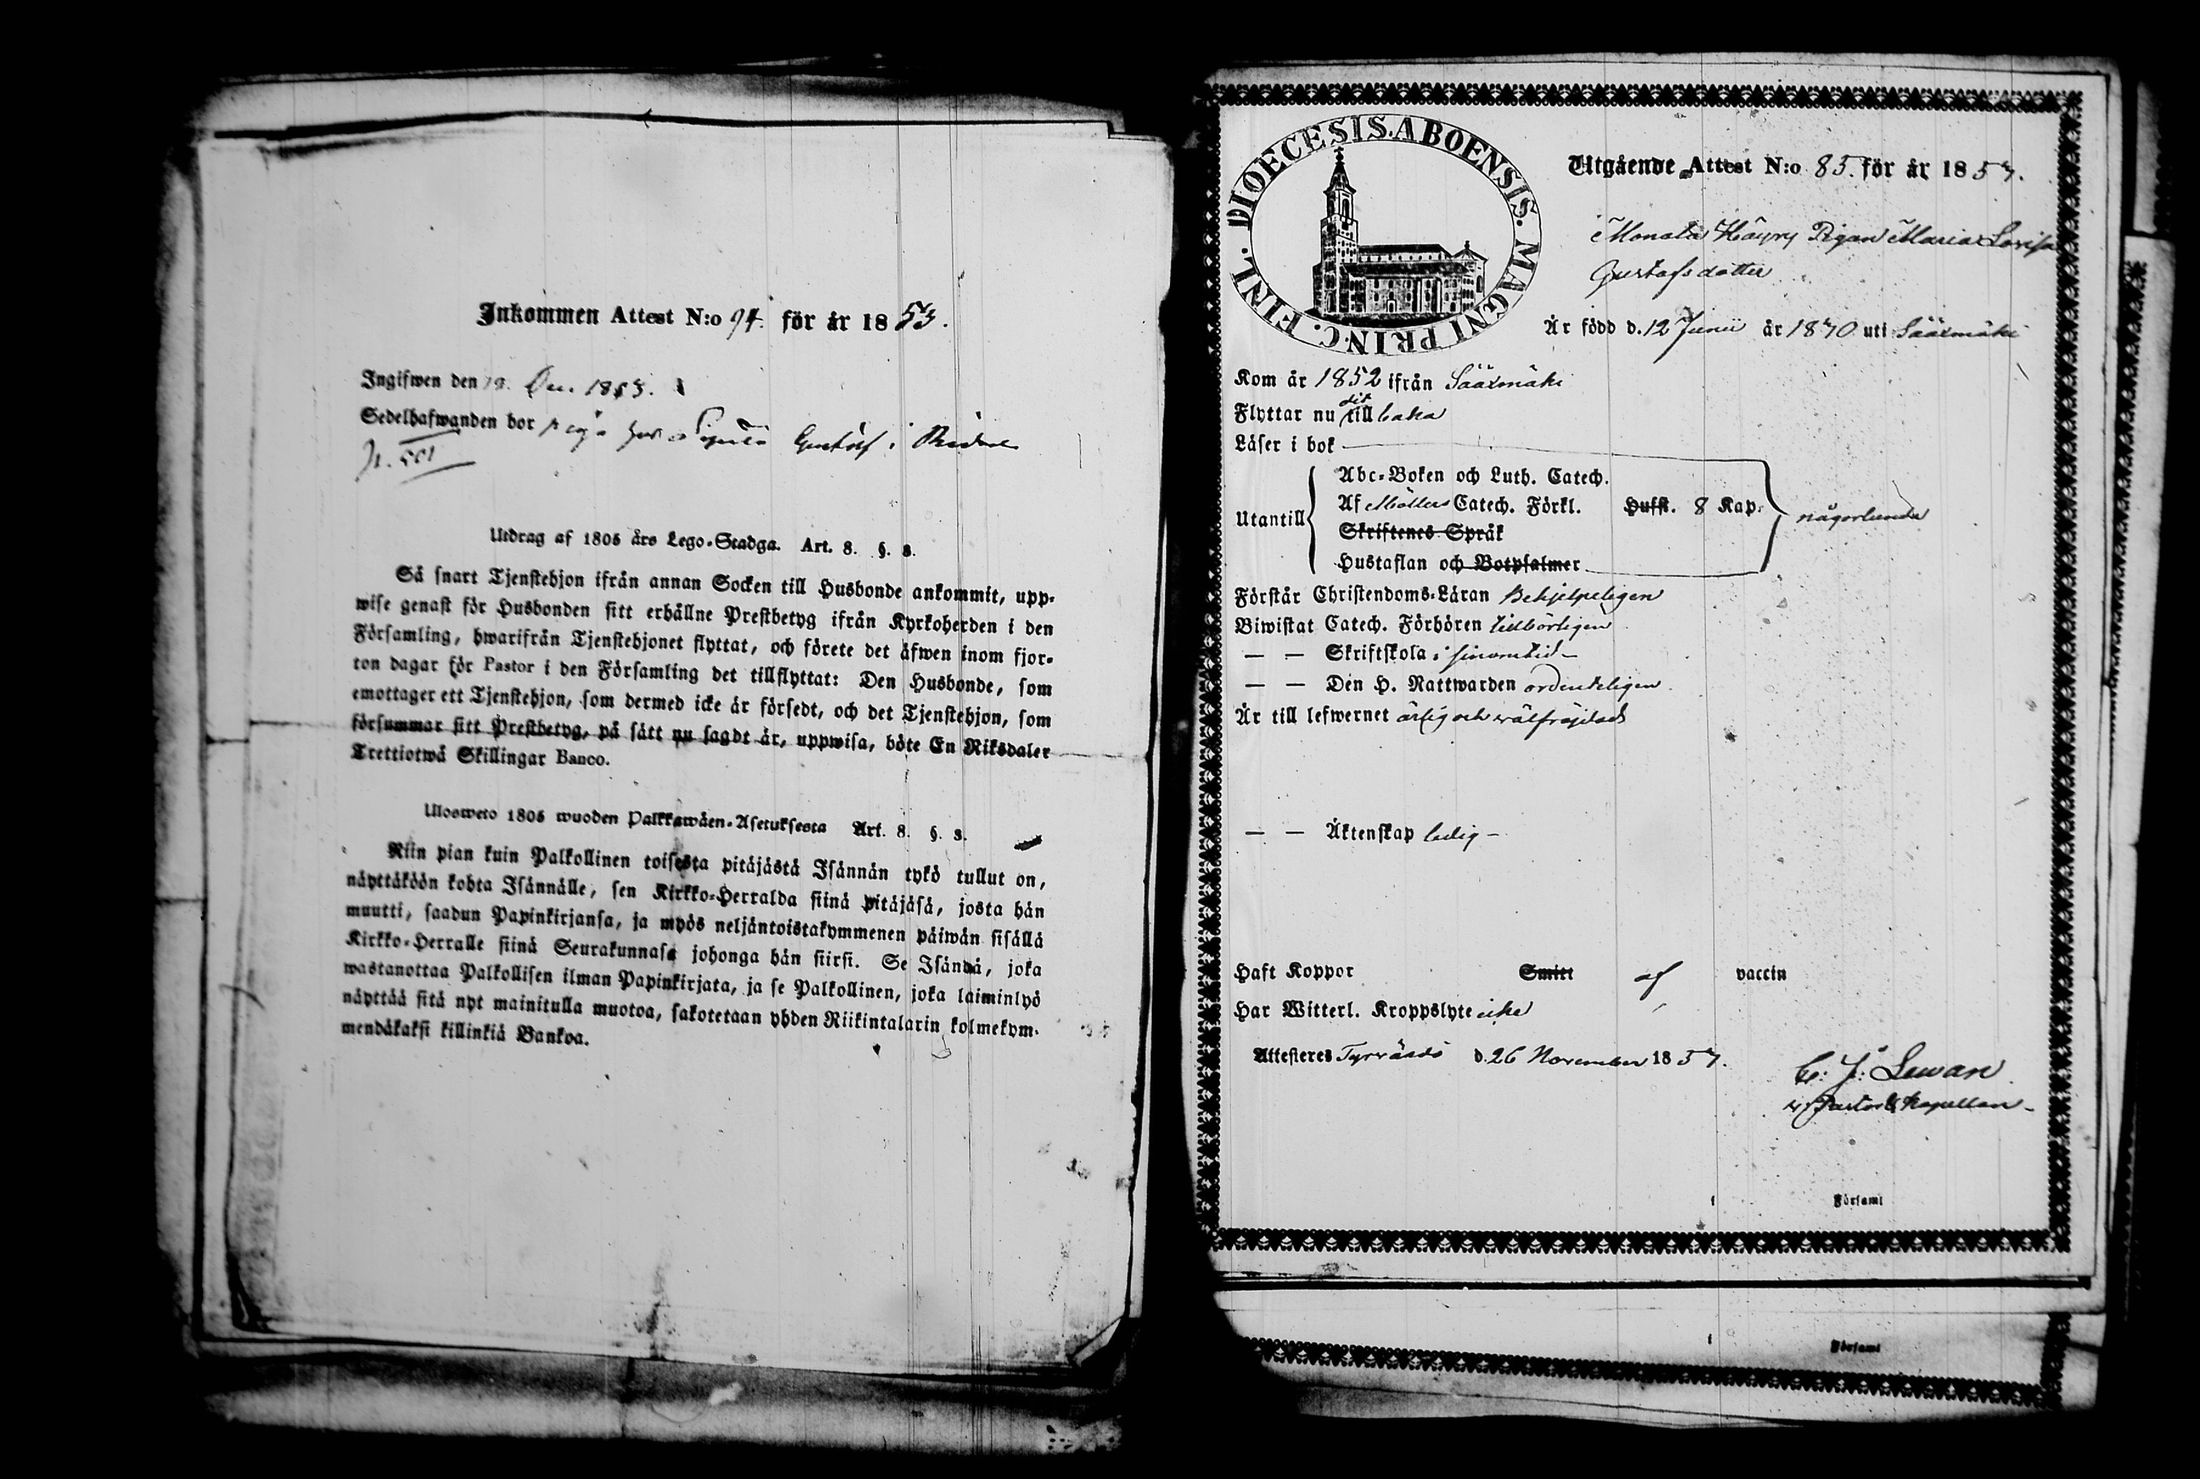 Inkommen Attest N:o 94. för år 1853.
Ingifwen den 19. Dec. 1853.
Sedelhafwanden bor Gustaf i
Utdrag af 1805 års Lego-Stadga. Art. 8. §. 3.
Så snart Tjenstehjon ifrån annan Socken till Husbonde ankommit, upp-
wise genast för Husbonden sitt erhållne Prestbetyg ifrån Kyrkoherden i den
Församling, hwarifrån Tjenstehjonet flyttat, och förete det äfwen inom fjor-
ton dagar för Pastor i den Församling det tillflyttat: Den Husbonde, som
emottager ett Tjenstehjon, som dermed icke är försedt, och det Tjenstehjon, som
försummar sitt Prestbetyg, på sätt nu sagdt är, uppwisa, böte En Riksdaler
Trettiotwå Skillingar Banco.
Ulosweto 1805 wuoden Palkkawäen-Asetuksesta Art. 8. §. 3.
Niin pian kuin Palkollinen toisesta pitäjästä Isännän tykö tullut on,
näyttäköön kohta Isännälle, sen Kirkko-Herralda siinä pitäjäsä, josta hän
muutti, saadun Papinkirjansa, ja myös neljäntoistakymmenen päiwän sisällä
Kirkko-Herralle siinä Seurakunnasa johonga hän siirsi. Se Isändä, joka
wastanottaa Palkollisen ilman Papinkirjata, ja se Palkollinen, joka laiminlyö
näyttää sitä nyt mainitulla muotoa, sakotetaan yhden Riikintalarin kolmekym-
mendäkaksi killinkiä Bankoa.
DIOECESIS ABOENSIS. MAGNI PRINC. FINL.
Utgående Attest N:o 85. för år 1853.
Monala Häyry Pigan Maria Lovisa
Gustafsdotter
Är född d. 12 Junii år 1830 uti Sääxmäki
Kom år 1852 ifrån Sääxmäki
Flyttar nu dit tillbaka
Läser i bok
Utantill
Abc-Boken och Luth. Catech.
Af Möllers Catech. Förkl. Hufst. 8 Kap.
Skriftenes Språk
Hustaflan och Botpsalmer
någorlunda
Förstår Christendoms-Läran Behjelpeligen
Biwistat Catech. Förhören tillbörligen
— — Skriftskola i sinom tid –
— — Den H. Nattwarden ordenteligen
Är till lefwernet ärlig och wälfrejdad
— — Äktenskap ledig –
Haft Koppor Smitt af vaccin
Har Witterl. Kroppslyte icke
Attesteres Tyrväsdö d. 26 November 1853.
C: J: Lewan
v Pastor & Kapellan –
i Församl
i Församl